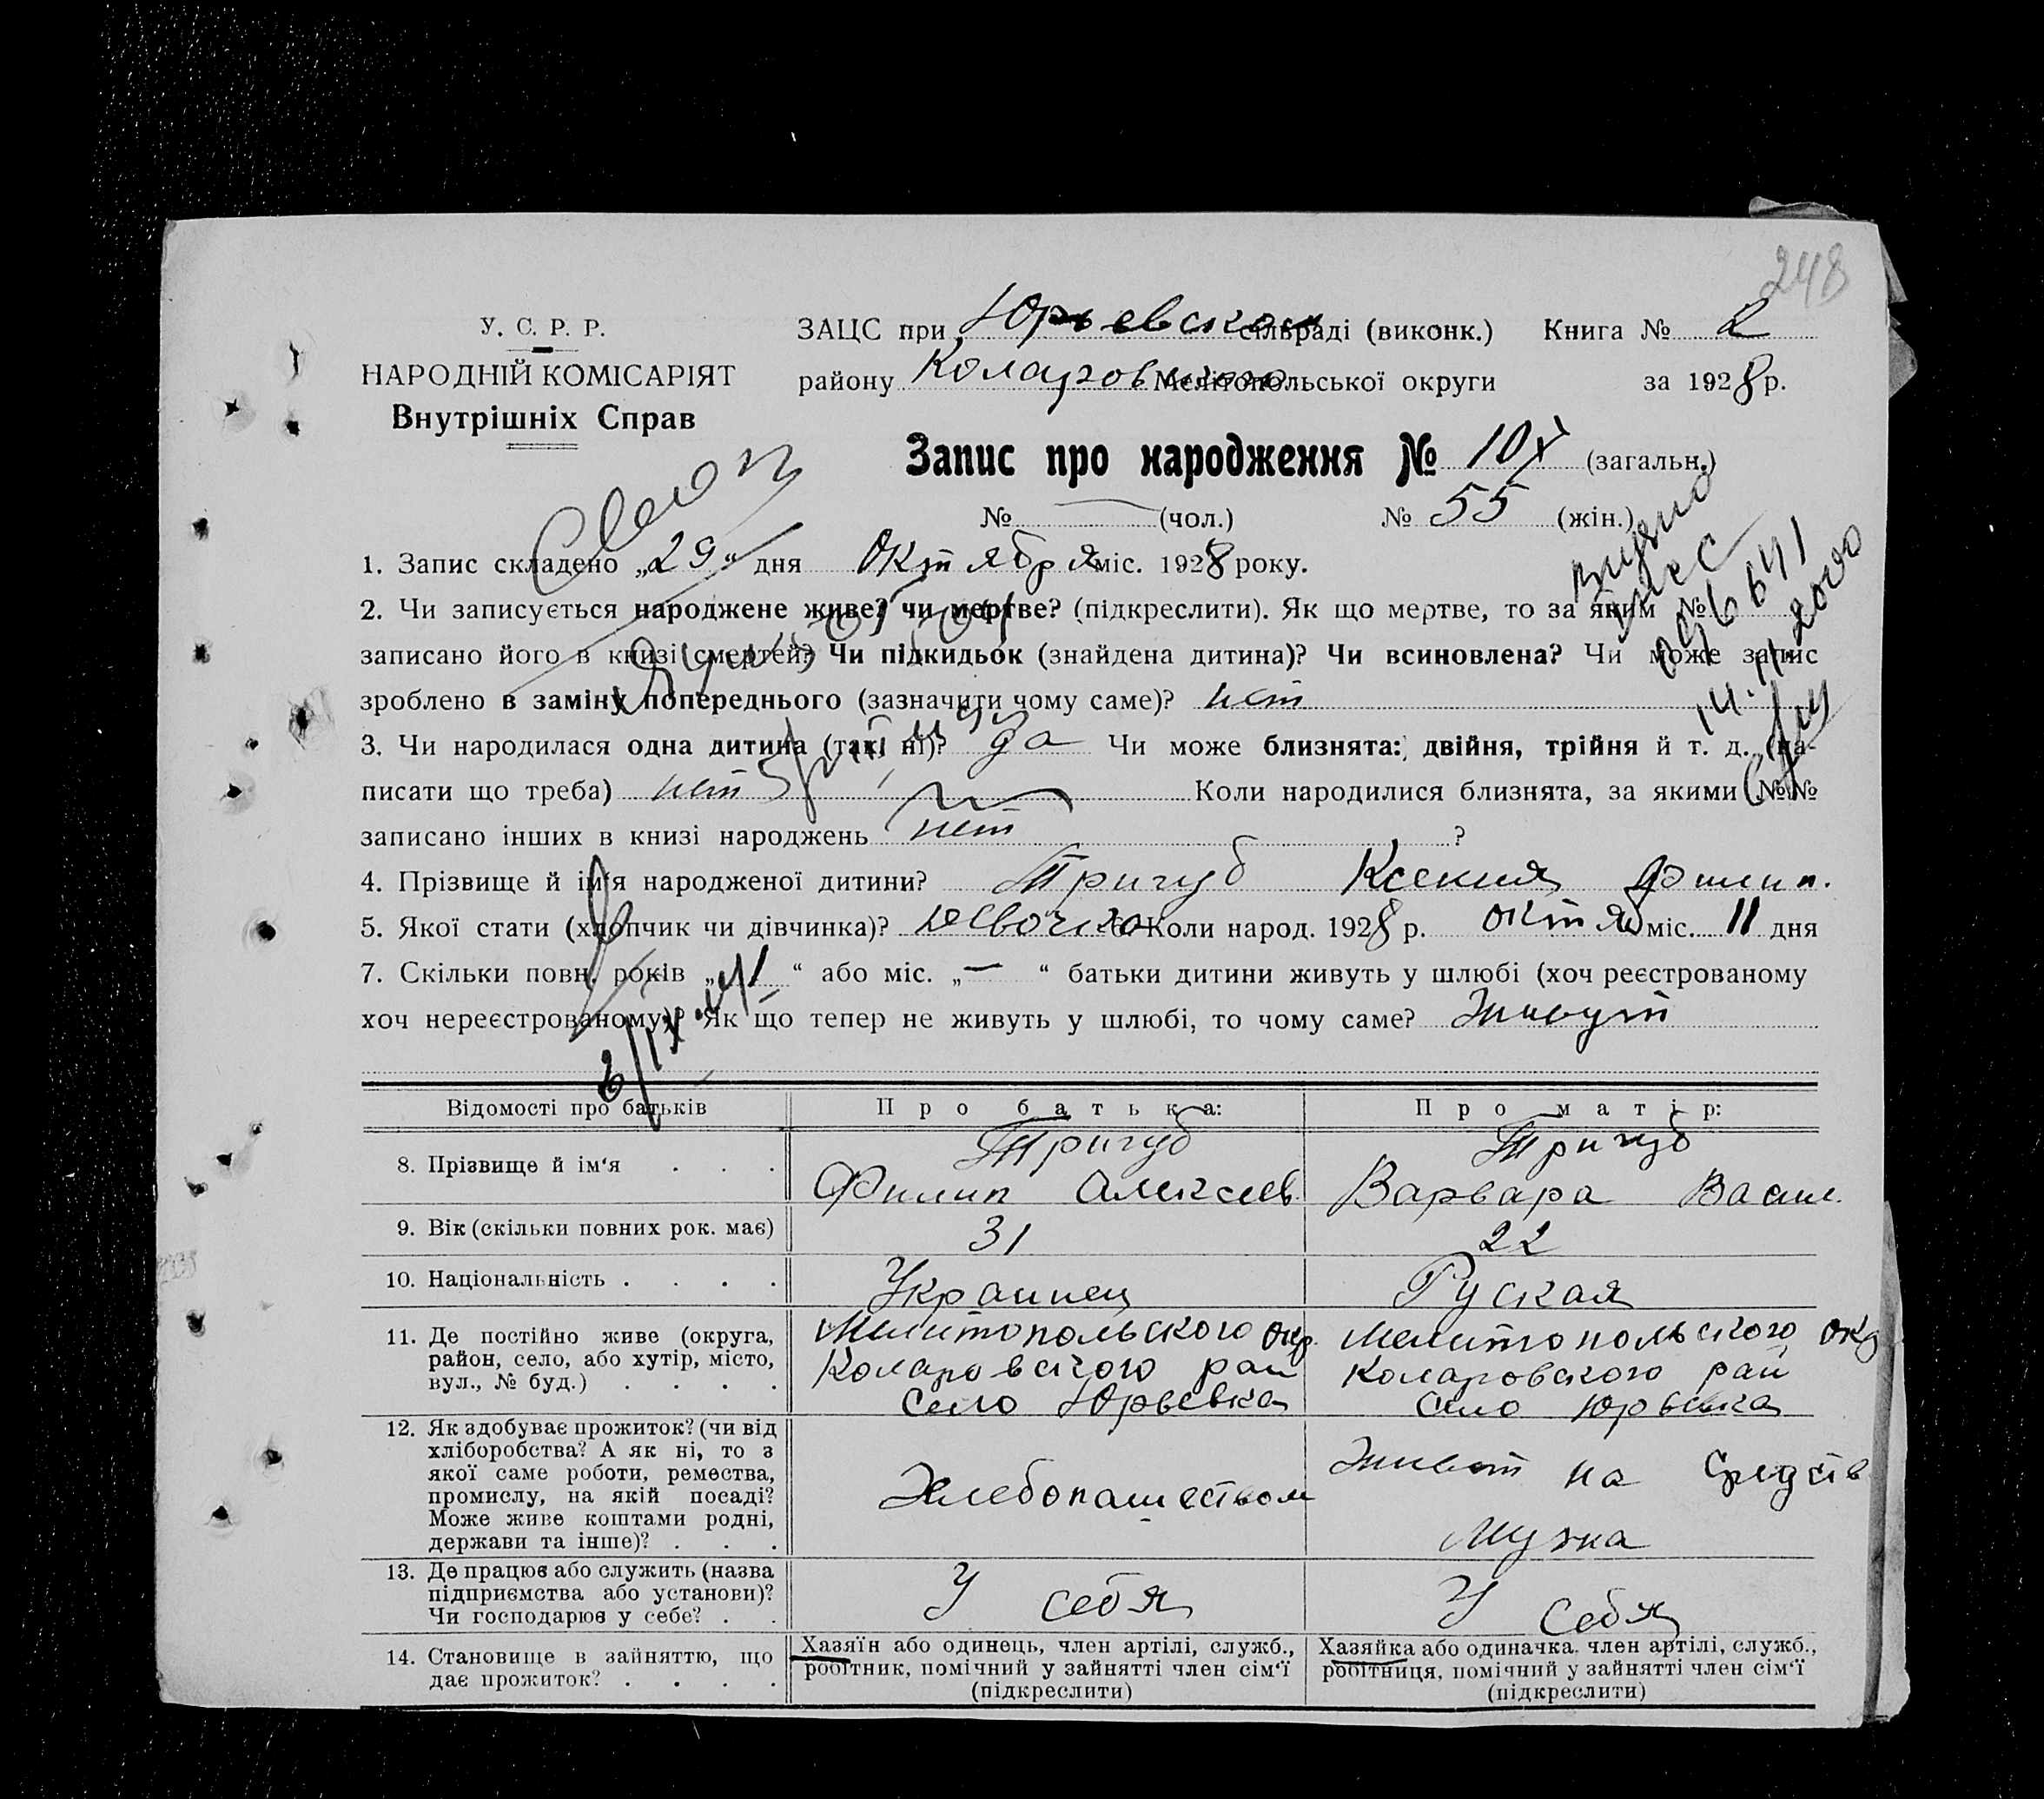 248
У. С. Р. Р.
НАРОДНІЙ КОМІСАРІЯТ
Внутрішніх Справ
ЗАЦС при Юрьевском сільраді (виконк.) Книга № 2
району Коларовского Мелітопольської округи за 1928 р.
Запис про народження № (загальн.)
№ — (чол.) № 55 (жін.)
1. Запис складено „29“ дня Октября міс. 1928 року.
2. Чи записується народжене живе? чи мертве? (підкреслити). Як що мертве, то за яким №
записано його в книзі смертей? Чи підкидьок (знайдена дитина)? Чи всиновлена? Чи може запис
зроблено в заміну попереднього (зазначити чому саме)? нет
3. Чи народилася одна дитина (так, ні)? да Чи може близнята: двійня, трійня й т. д. (на-
писати що треба) нет Коли народилися близнята, за якими №№
записано інших в книзі народжень нет ?
4. Прізвище й ім'я народженої дитини? Тригуб Ксения Филип.
5. Якої стати (хлопчик чи дівчинка)? девочка 6. Коли народ. 1928 р. октяб міс. 11 дня
7. Скільки повн. років „ “ або міс. „—“ батьки дитини живуть у шлюбі (хоч реєстрованому
хоч нереєстрованому)? Як що тепер не живуть у шлюбі, то чому саме? Живут
14.11.2000
Відомості про батьків Про батька: Про матір:
8. Прізвище й ім‘я . . . Тригуб Филип Алексеев. Тригуб Варвара Васил.
9. Вік (скільки повних рок. має) 31 22
10. Національність . . . . Украинец Руская
11. Де постійно живе (округа, Мелитопольского окр. Мелитопольского окр
район, село, або хутір, місто, Коларовского рай Коларовского рай
вул., № буд.) . . . . Село Юрьевка Село Юрьевка
12. Як здобуває прожиток? (чи від
хліборобства? А як ні, то з
якої саме роботи, ремества, Хлебопашеством Живет на средств
промислу, на якій посаді?
Може живе коштами родні, мужа
держави та інше)? . . .
13. Де працює або служить (назва
підприємства або установи)? У себя У себя
Чи господарює у себе? . .
14. Становище в зайняттю, що Хазяїн або одинець, член артілі, служб., Хазяйка або одиначка, член артілі, служб.,
дає прожиток? . . . . робітник, помічний у зайнятті член сім‘ї робітниця, помічний у зайнятті член сім‘ї
(підкреслити) (підкреслити)